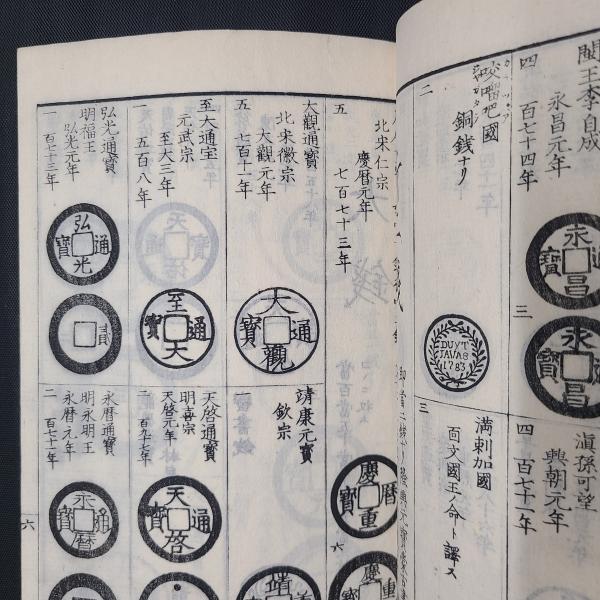 閩王李自成
永昌元年
四 百七十四年
永昌通寳
三
永昌
滇孫可望
興朝元年
四 百七十一年
咬𠺕吧國
銅銭ナリ
二
DUYT
JAVAS
1783
三
満剌加國
回文國王ノ命ト譯ス
北宋仁宗
慶暦元年
五 七百七十三年
慶暦重寳
六
慶暦重
大觀通寳
北宋徽宗
大觀元年
五 七百十一年
大觀通寳
靖康元寳
欽宗
一
靖
至大通宝
元武宗
至大三年
二 五百八年
至大通寳
天啓通寳
明喜宗
天啓元年
二 百九十七年
天啓通寳
弘光通寳
明福王
弘光元年
一 百七十三年
弘光通寳
永暦通寳
明永明王
永暦元年
二 百七十一年
永暦通寳
六